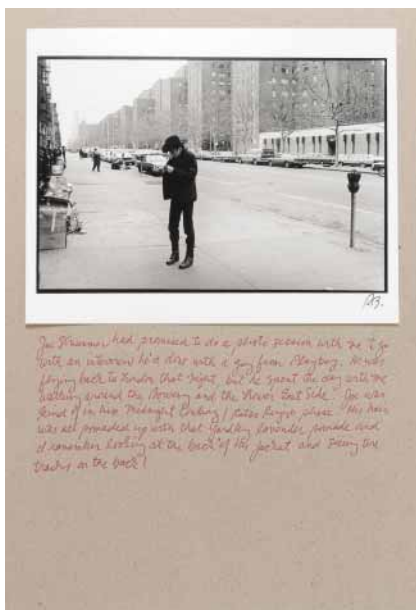 AB.
Joe Strummer had promised to do a photo session with me to go
with an interview he'd done with a guy from Playboy. He was
flying back to London that night, but he spent the day with me
walking around the Bowery and the Lower East Side. Joe was
kind of in his Midnight Cowboy / phase. His hair
was all pomaded up with that Yardley lavender pomade and
I remember looking at the back of his jacket and seeing the
tracks on the back!